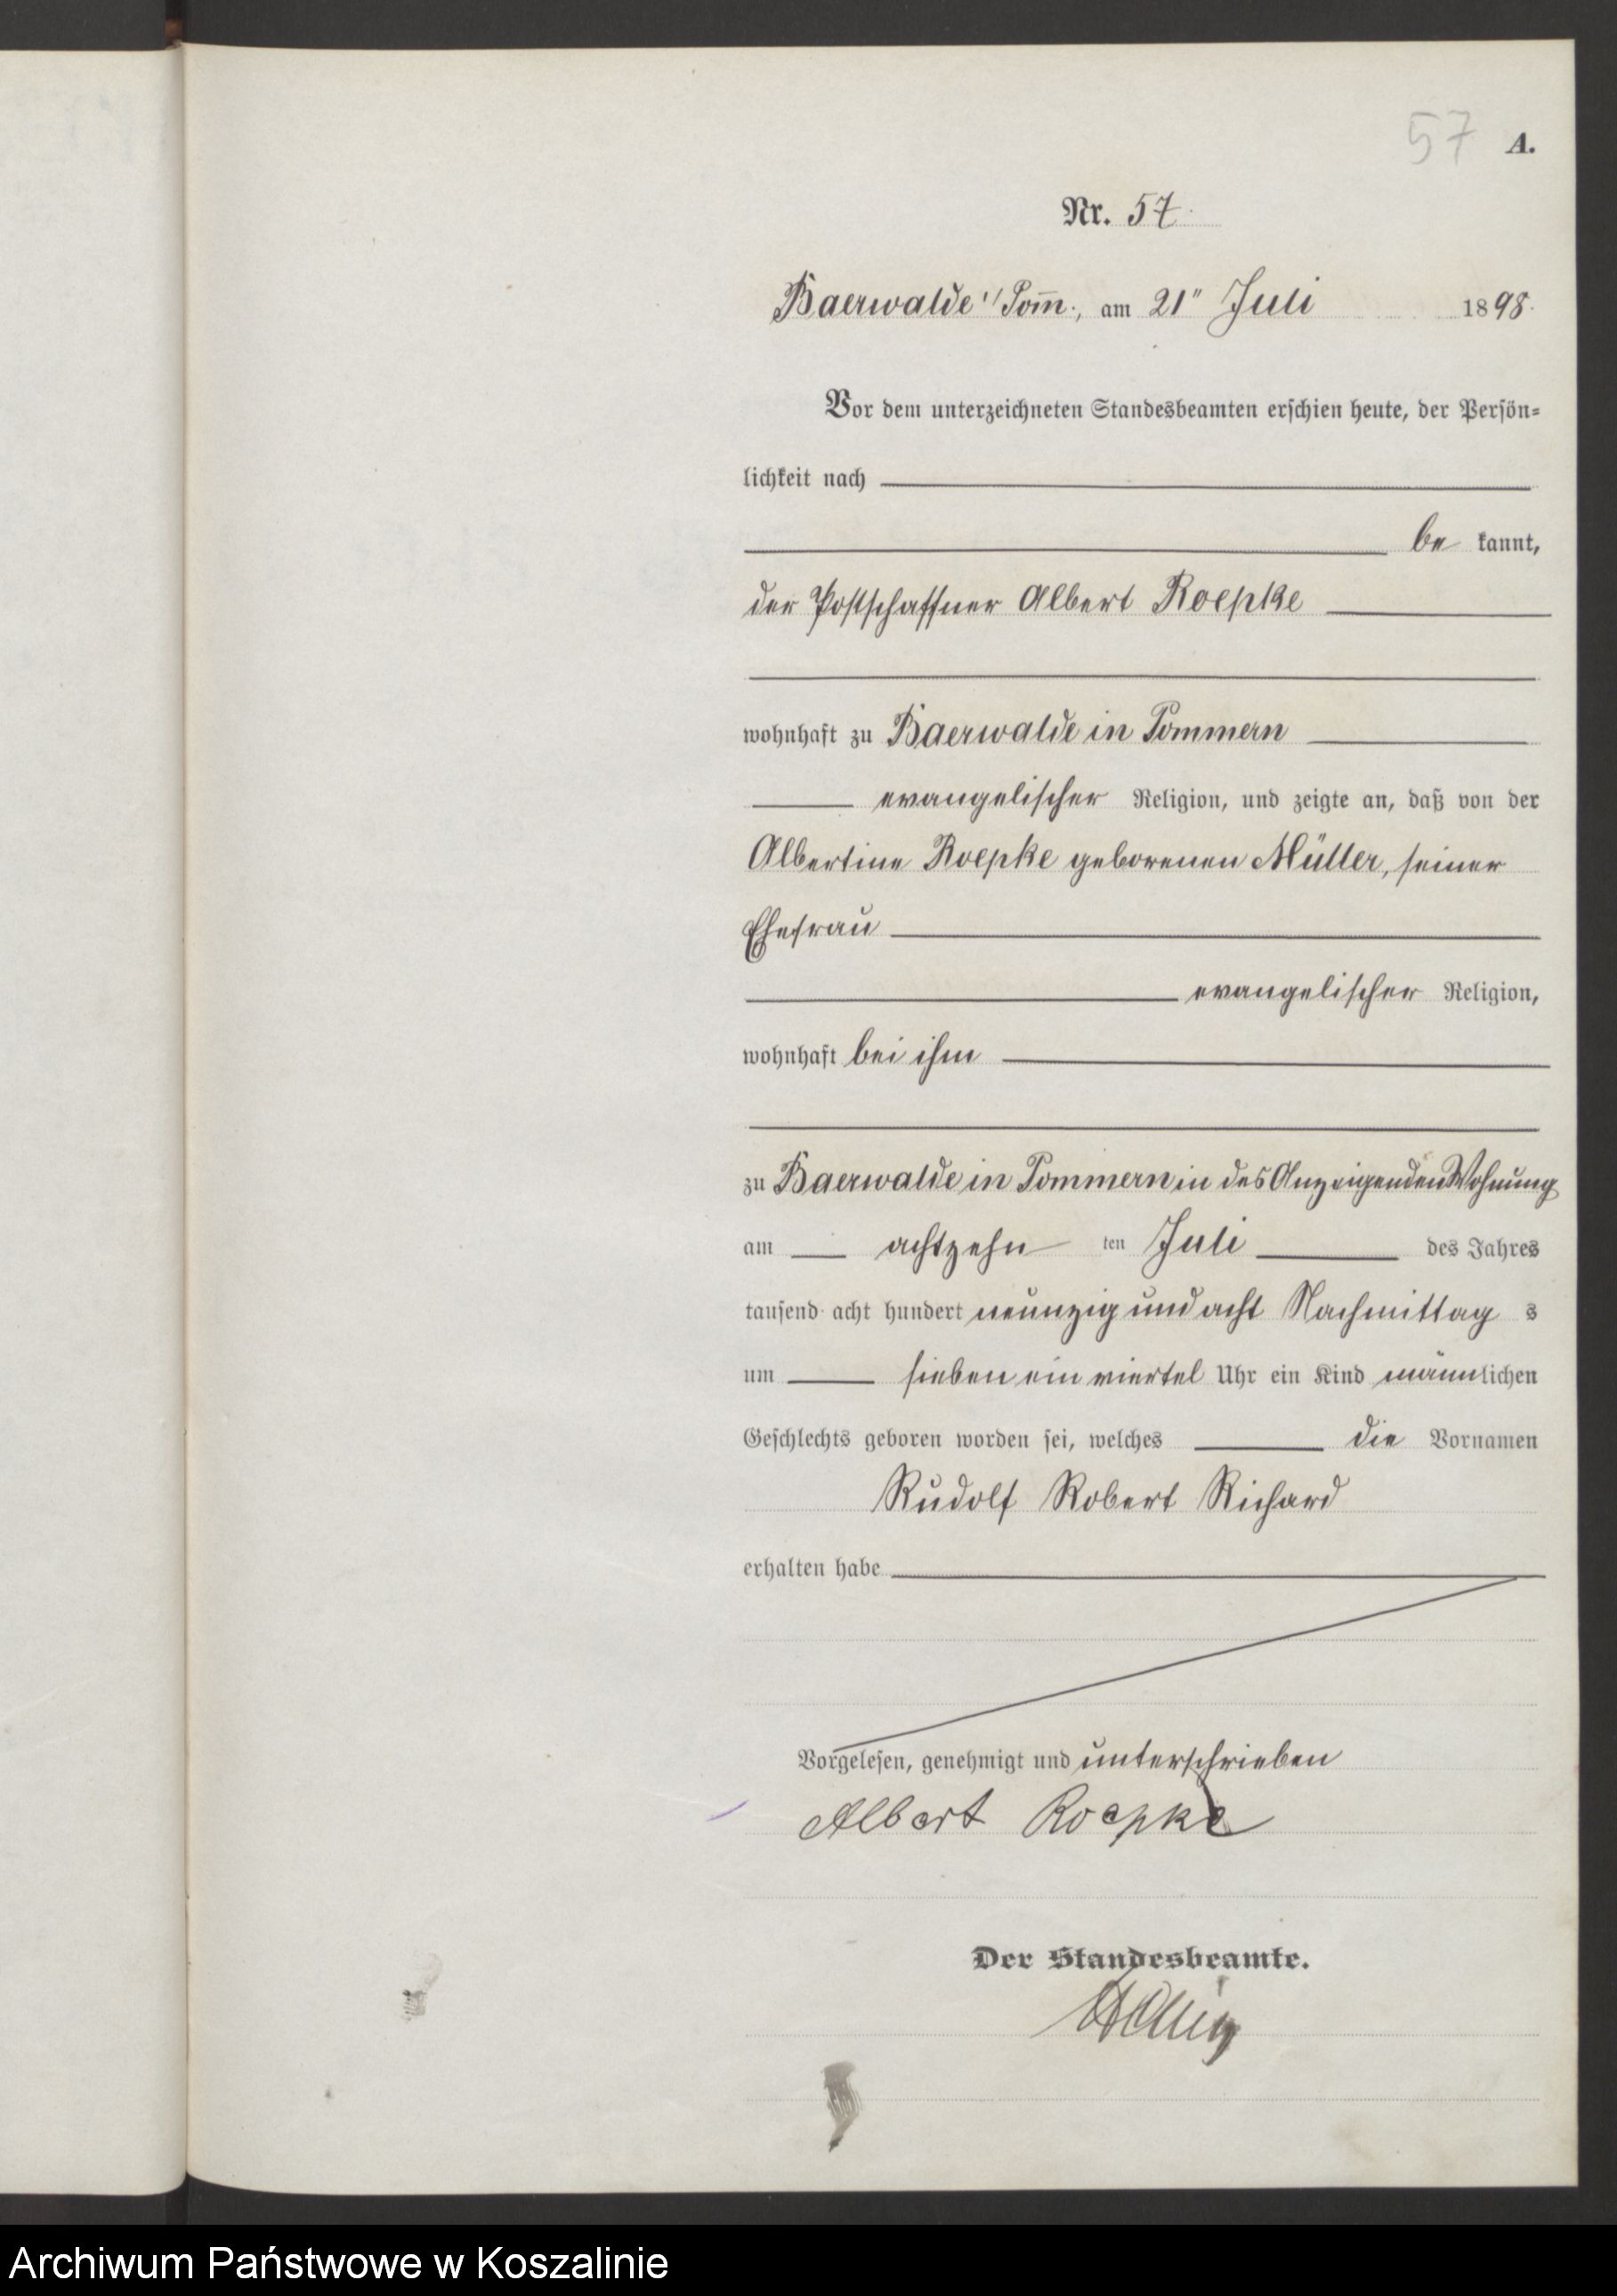 57 A.
Nr. 57.
Baerwalde i/Pom̅., am 21" Juli 1898.
Vor dem unterzeichneten Standesbeamten erschien heute, der Persön=
lichkeit nach
be kannt,
der Postschaffner Albert Roepke
wohnhaft zu Baerwalde in Pommern
evangelischer Religion, und zeigte an, daß von der
Albertine Roepke geborenen Müller, seiner
Ehefrau
evangelischer Religion,
wohnhaft bei ihm
zu Baerwalde in Pommern in des Anzeigenden Wohnung
am achtzehn ten Juli des Jahres
tausend acht hundert neunzig und acht Nachmittag s
um sieben ein viertel Uhr ein Kind männlichen
Geschlechts geboren worden sei, welches die Vornamen
Rudolf Robert Richard
erhalten habe
Vorgelesen, genehmigt und unterschrieben
Albert Roepke
Der Standesbeamte.
Archiwum Państwowe w Koszalinie